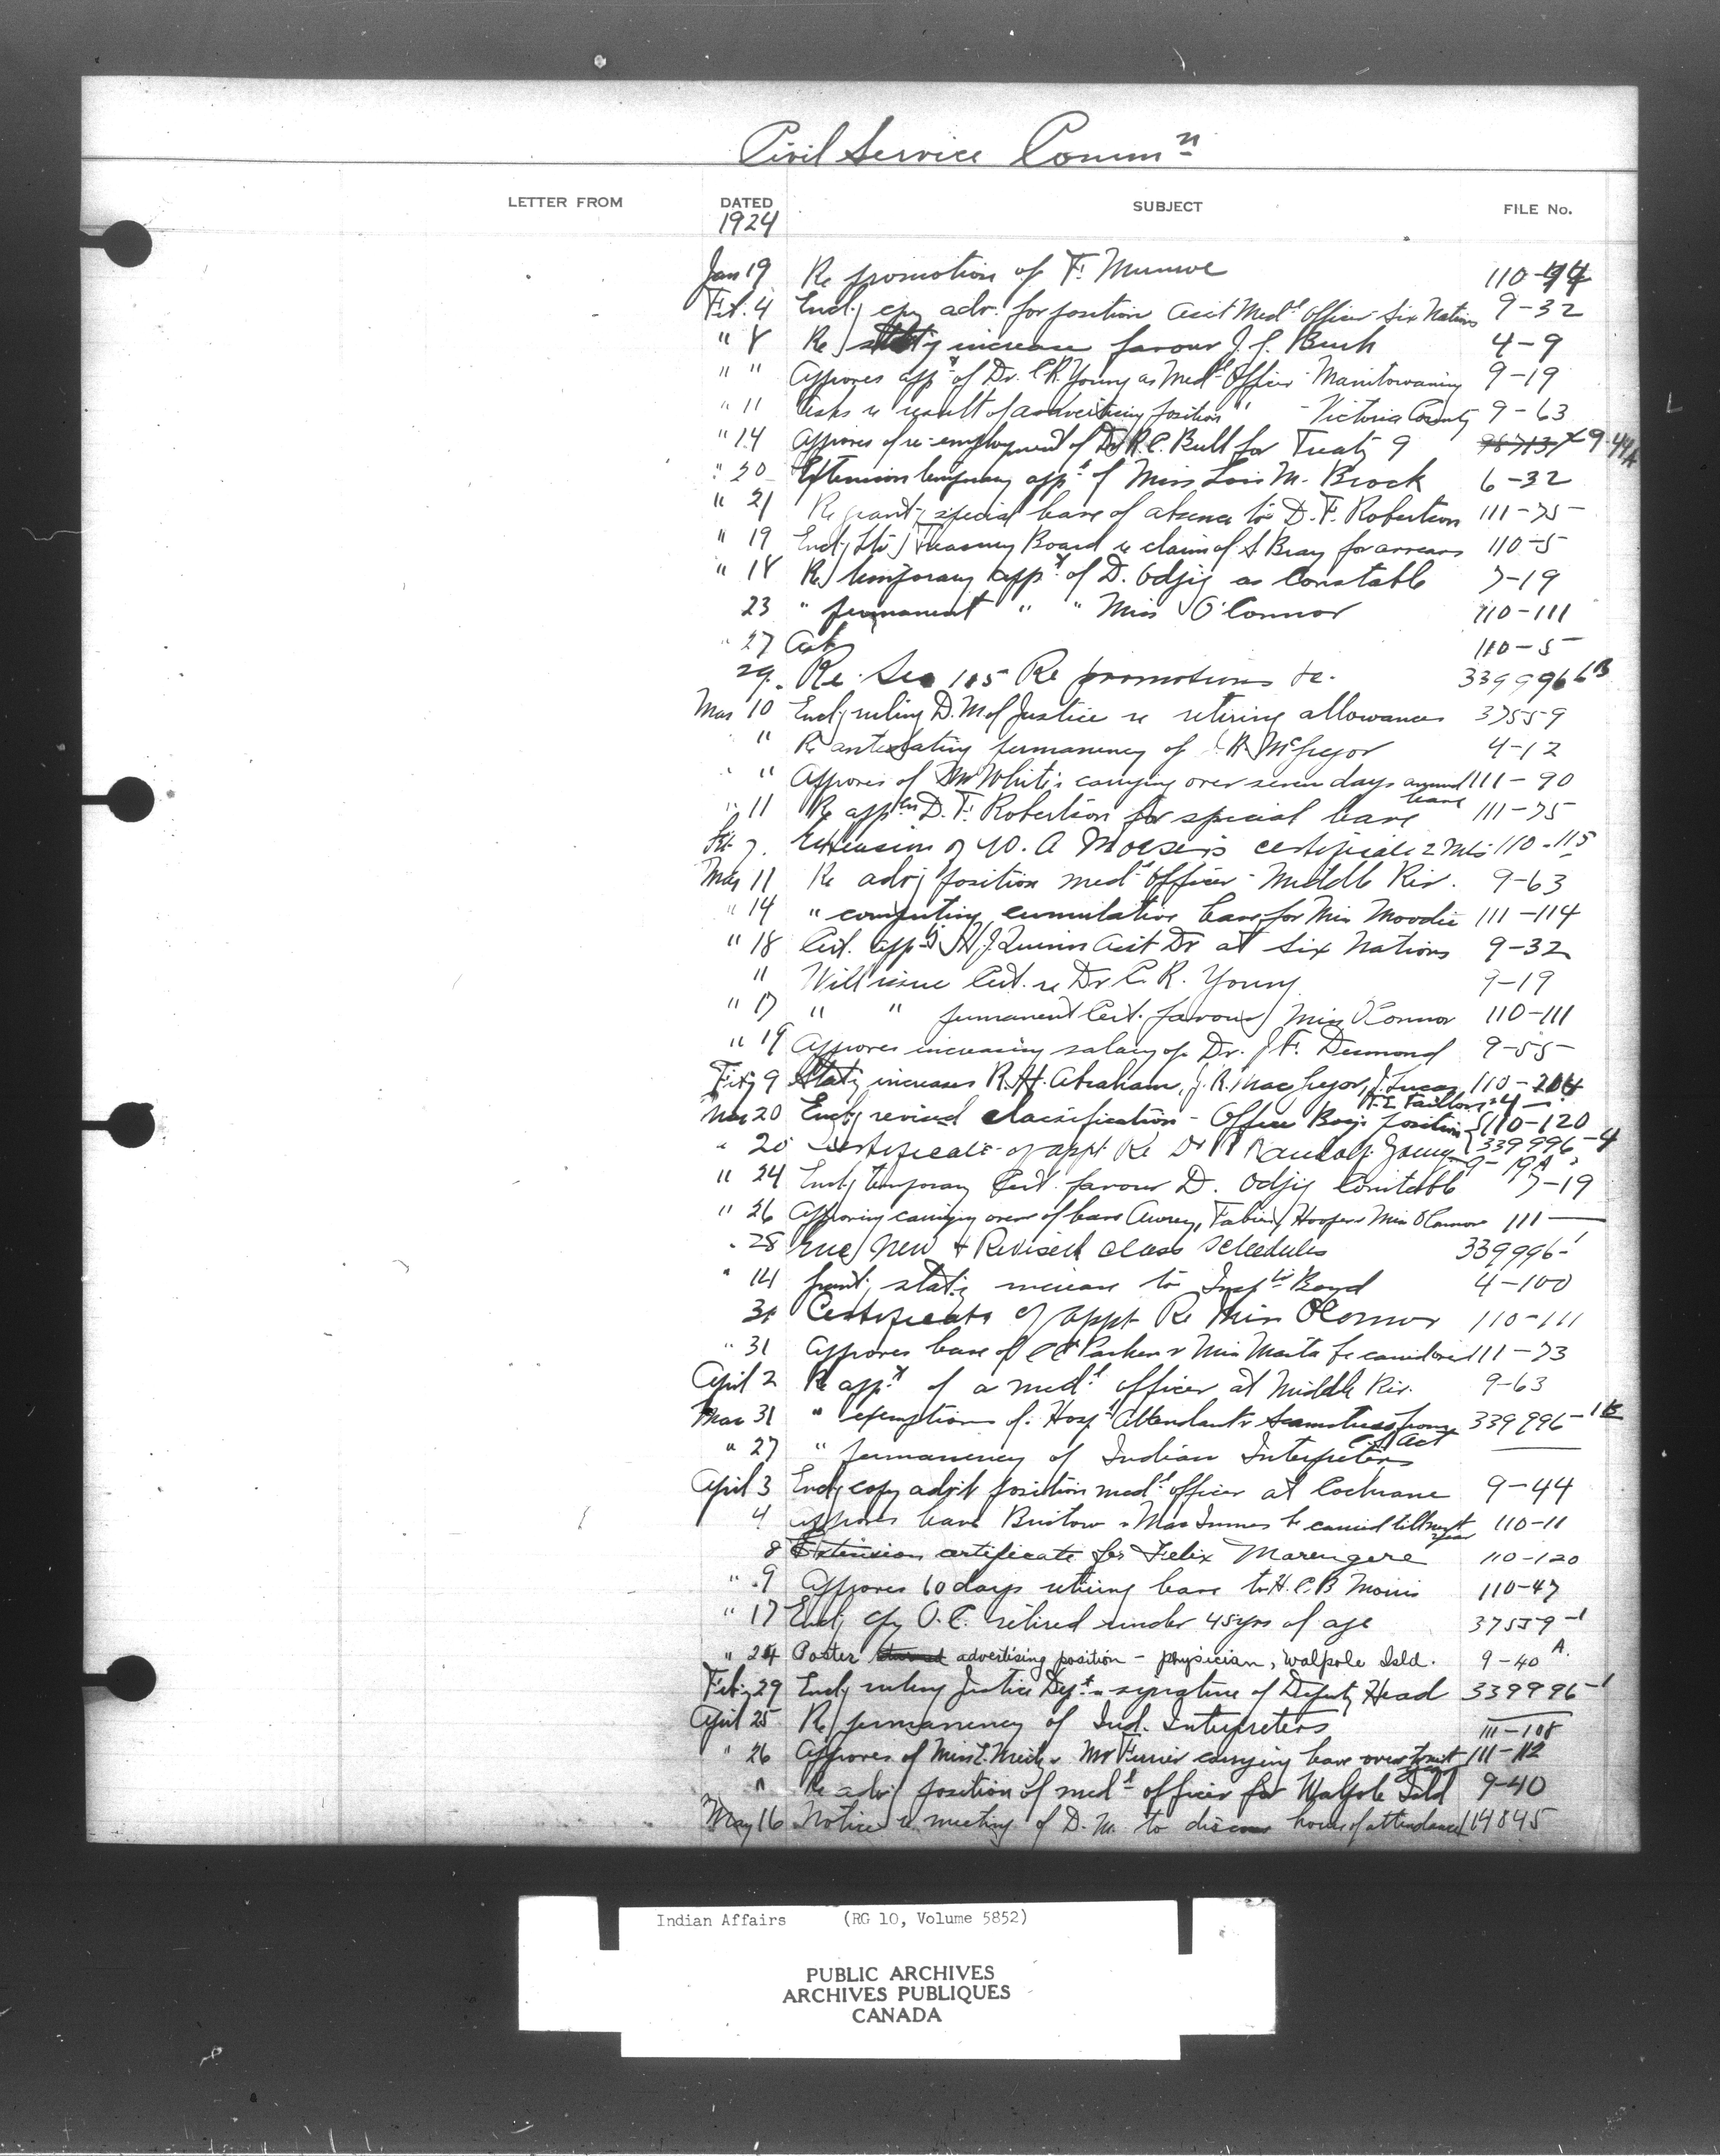 Civil Service Commn
LETTER FROM DATED SUBJECT FILE No.
1924
Jan 19 Re promotion of F. Munroe 110-
Feb. 4 Encl'g cpy adv. for position Asst Medl Officer Six Nations 9-32
" 8 Re stat'y increase favour J. Bush 4-9
" " Approves appt of Dr. C.R. Young as Medl Officer - Manitowaning 9-19
" 11 Asks re result of advertising position " - Victoria County 9-63
" 14 Approves of re-employment of Dr R.C. Bull for Treaty 9 98713 9-44A
" 20 Extension temporary appt of Miss Lois M. Brock 6-32
" 21 Re grant'g special leave of absence to D.F. Robertson 111-75
" 19 Encl'g Treasury Board re claim of S Bray for arrears 110-5
" 18 Re temporary appt of D. Odjig as Constable 7-19
23 " permanent " " Miss O'Connor 110-111
" 27 110-5
29. Re Sec 105 Re promotions &c. 339996 1B
Mar 10 Encl'g ruling D.M of Justice re retiring allowances 37559
" Re antedating permanency of R. McGregor 4-12
" " Approves of Mr White's carrying over seven days annual leave 111-90
" 11 Re appln D.F. Robertson for special leave 111-75
7. Extension of W. A Moese's certificate 2 Mts 110-115
Mar 11 Re adv'g position medl officer - Middle Riv. 9-63
" 14 " computing cumulative leave for Miss Moodie 111-114
" 18 Cert. appt'g H.J. Quinn Asst Dr at Six Nations 9-32
" Will issue Cert. re Dr C.R. Young 9-19
" 17 " " permanent Cert. favour Miss O'Connor 110-111
" 19 Approves increasing salary of Dr. J.F. Desmond 9-55
Feby 9 Stat'y increases R.H. Abraham, J.R. MacGregor, J. Lucas, 110-
H.E. Taillon
Mar 20 Encl'g revised classification - Office Boy's position 110-120
" 20 Certificate of appt Re Dr Young 339996-4
9-19A
" 24 Encl'g temporary Cert. favour D. Odjig Constable 7-19
" 26 Approving carrying over of leave Awrey, Fabien, Hooper & Miss O'Connor 111 —
" 28 Enc New & Revised class schedules 339996-1
" 14 Grant'g stat'y increase to Inspr Boyd 4-100
31 Certificate of appt Re Miss O'Connor 110-111
" 31 Approves leave of Parker & Miss be considered 111-73
April 2 Re appt of a medl officer at Middle Riv. 9-63
Mar 31 " exemption of Hospl Attendants & Seamstress from C.S. Act 339996-1B
" 27 " permanency of Indian Interpreters —
April 3 Encl'g copy adv'g position medl officer at Cochrane 9-44
4 Approves leave Bristow & MacInnes be carried till next year 110-11
8 Extension certificate for Felix Marengere 110-120
" 9 Approves 60 days retiring leave to H.C.B Morris 110-47
" 17 Encl'g cpy O.C. retired under 45 yrs of age 37559-1
" 24 Poster advertising position - physician, Walpole Isld. 9-40 A.
Feby 29 Encl'g ruling Justice Dept re signature of Deputy Head 339996-1
April 25 Re permanency of Ind. Interpreters —
111-108
" 26 Approves of Miss E. & Mr Ferrier carrying leave over 111-112
" Re adv'g position of medl officer for Walpole Isld 9-40
May 16 Notice re meeting of D.M. to discuss hours of attendance 114845
Indian Affairs (RG 10, Volume 5852)
PUBLIC ARCHIVES
ARCHIVES PUBLIQUES
CANADA